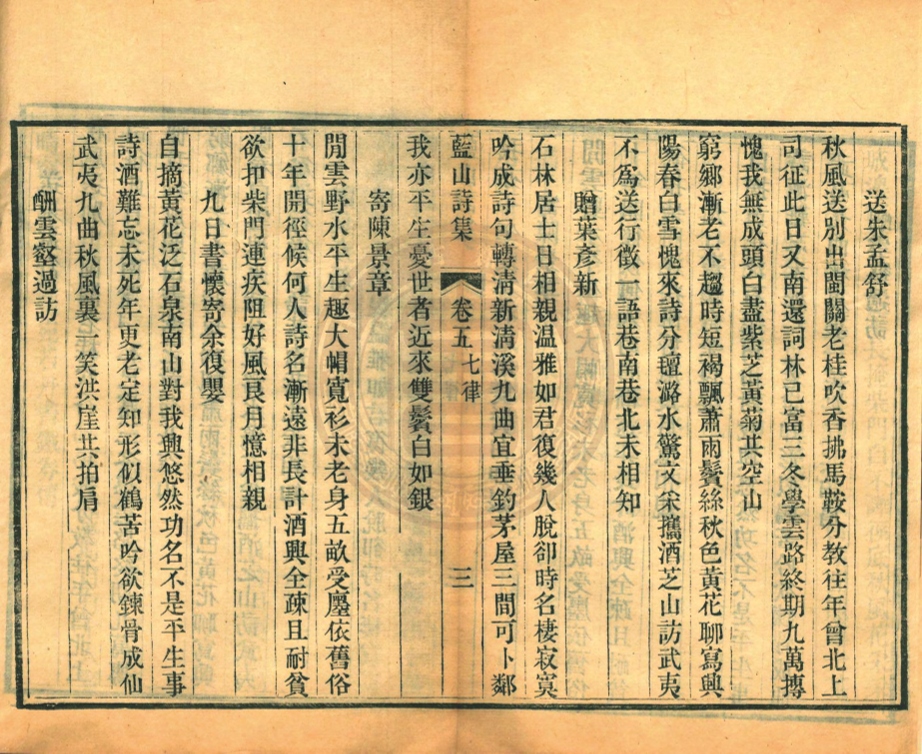 送朱孟舒
秋風送別出閩關老桂吹香拂馬鞍分教往年曾北上
司征此日又南還詞林己富三冬學雲路終期九萬摶
愧我無成頭白盡紫芝黃菊共空山
窮鄉漸老不趨時短褐飄蕭雨鬢絲秋色黃花聊寫興
陽春白雪愧來詩分璮潞水驚文采攜酒芝山訪武夷
不為送行徵一語巷南巷北未相知
贈葉彥新
石林居士日相親溫雅如君復幾人脫卻時名棲寂寞
吟成詩句轉清新清溪九曲宜垂釣茅屋三間可卜鄰
藍山詩集 卷五 七律 三
我亦平生憂世者近來雙鬢白如銀
寄陳景章
閒雲野水平生趣大帽寬衫未老身五畝受廛依舊俗
十年開徑候何人詩名漸遠非長計酒興全疎且耐貧
欲扣柴門連疾阻好風良月憶相親
九日書懷寄余復嬰
自摘黃花泛石泉南山對我興悠然功名不是平生事
詩酒難忘未死年更老定知形似鶴苦吟欲鍊骨成仙
武夷九曲秋風裏一笑洪崖共拍肩
酬雲壑過訪